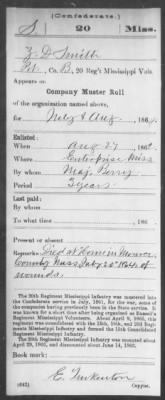 (Confederate.)
S 20 Miss.
Z. D. Smith
Pvt, Co. B, 20 Reg't Mississippi Vols.
Appears on
Company Muster Roll
of the organization named above,
for July & Aug, 1864.
Enlisted:
When Aug 27, 186
Where Enterprise Miss
By whom Maj. Berry
Period 3 years
Last paid:
By whom
To what time , 186
Present or absent
Remarks: Died at Home in Monroe
County Miss July 20" 1864 of
wounds.
The 20th Regiment Mississippi Infantry was mustered into
the Confederate service in July, 1861, for the war, some of the
companies having previously been in the State service. It
was known for a short time after being organized as Russell's
Regiment Mississippi Volunteers. About April 9, 1865, this
regiment was consolidated with the
Mississippi Infantry and formed the 15th Consolidated
Regiment Mississippi Infantry.
Book mark:
(642)
Copyist.